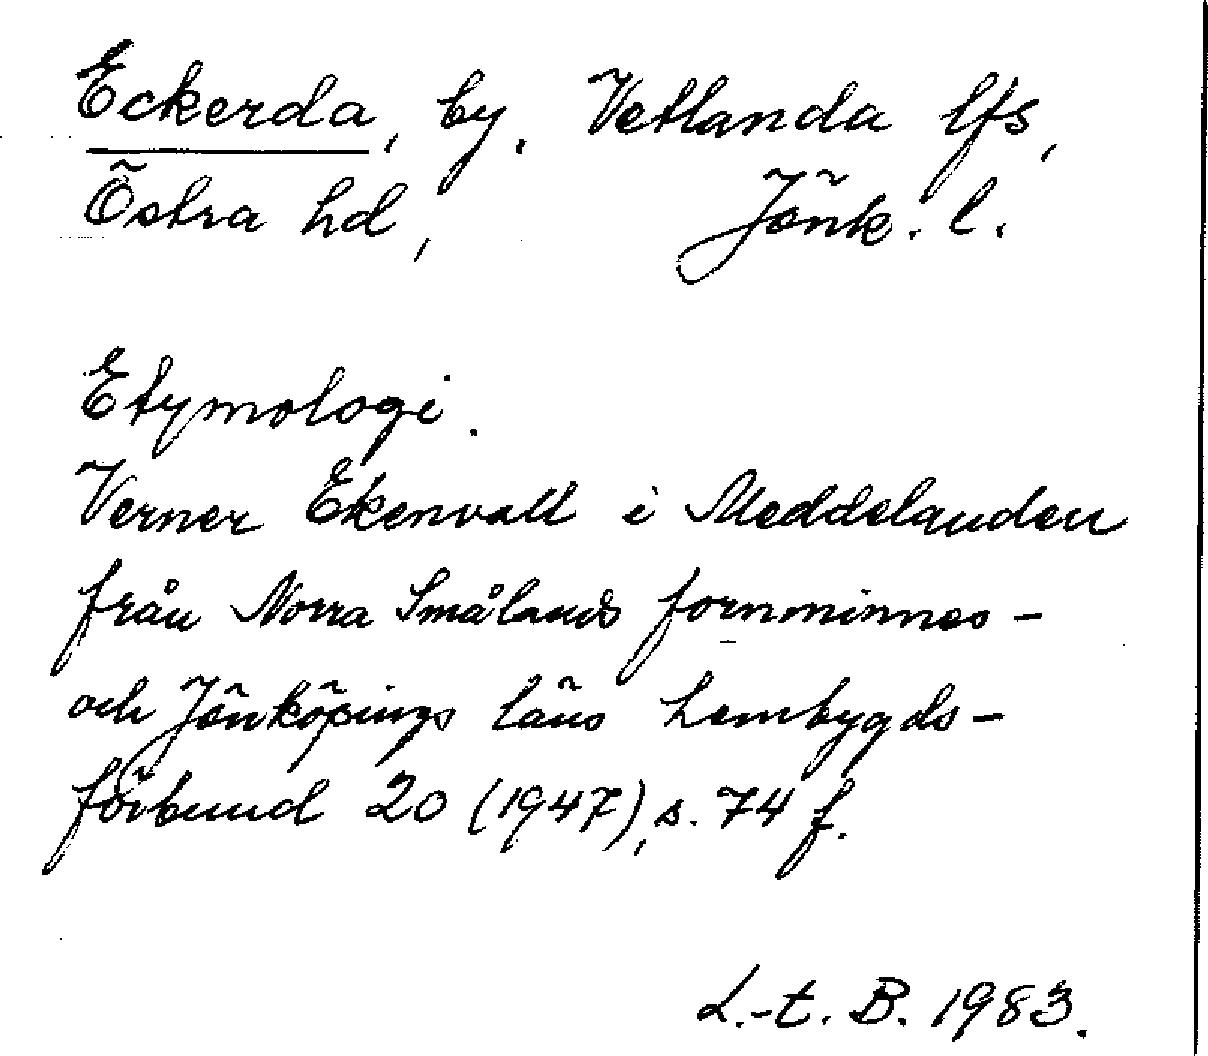 Eckerda, by, Vetlanda lfs,
Östra hd, Jönk. l.
Etymologi.
Verner Ekenvall i Meddelanden
från Norra Smålands fornminnes-
och Jönköpings läns hembygds-
förbund 20 (1947), s. 74 f.
L.-t. B. 1983.